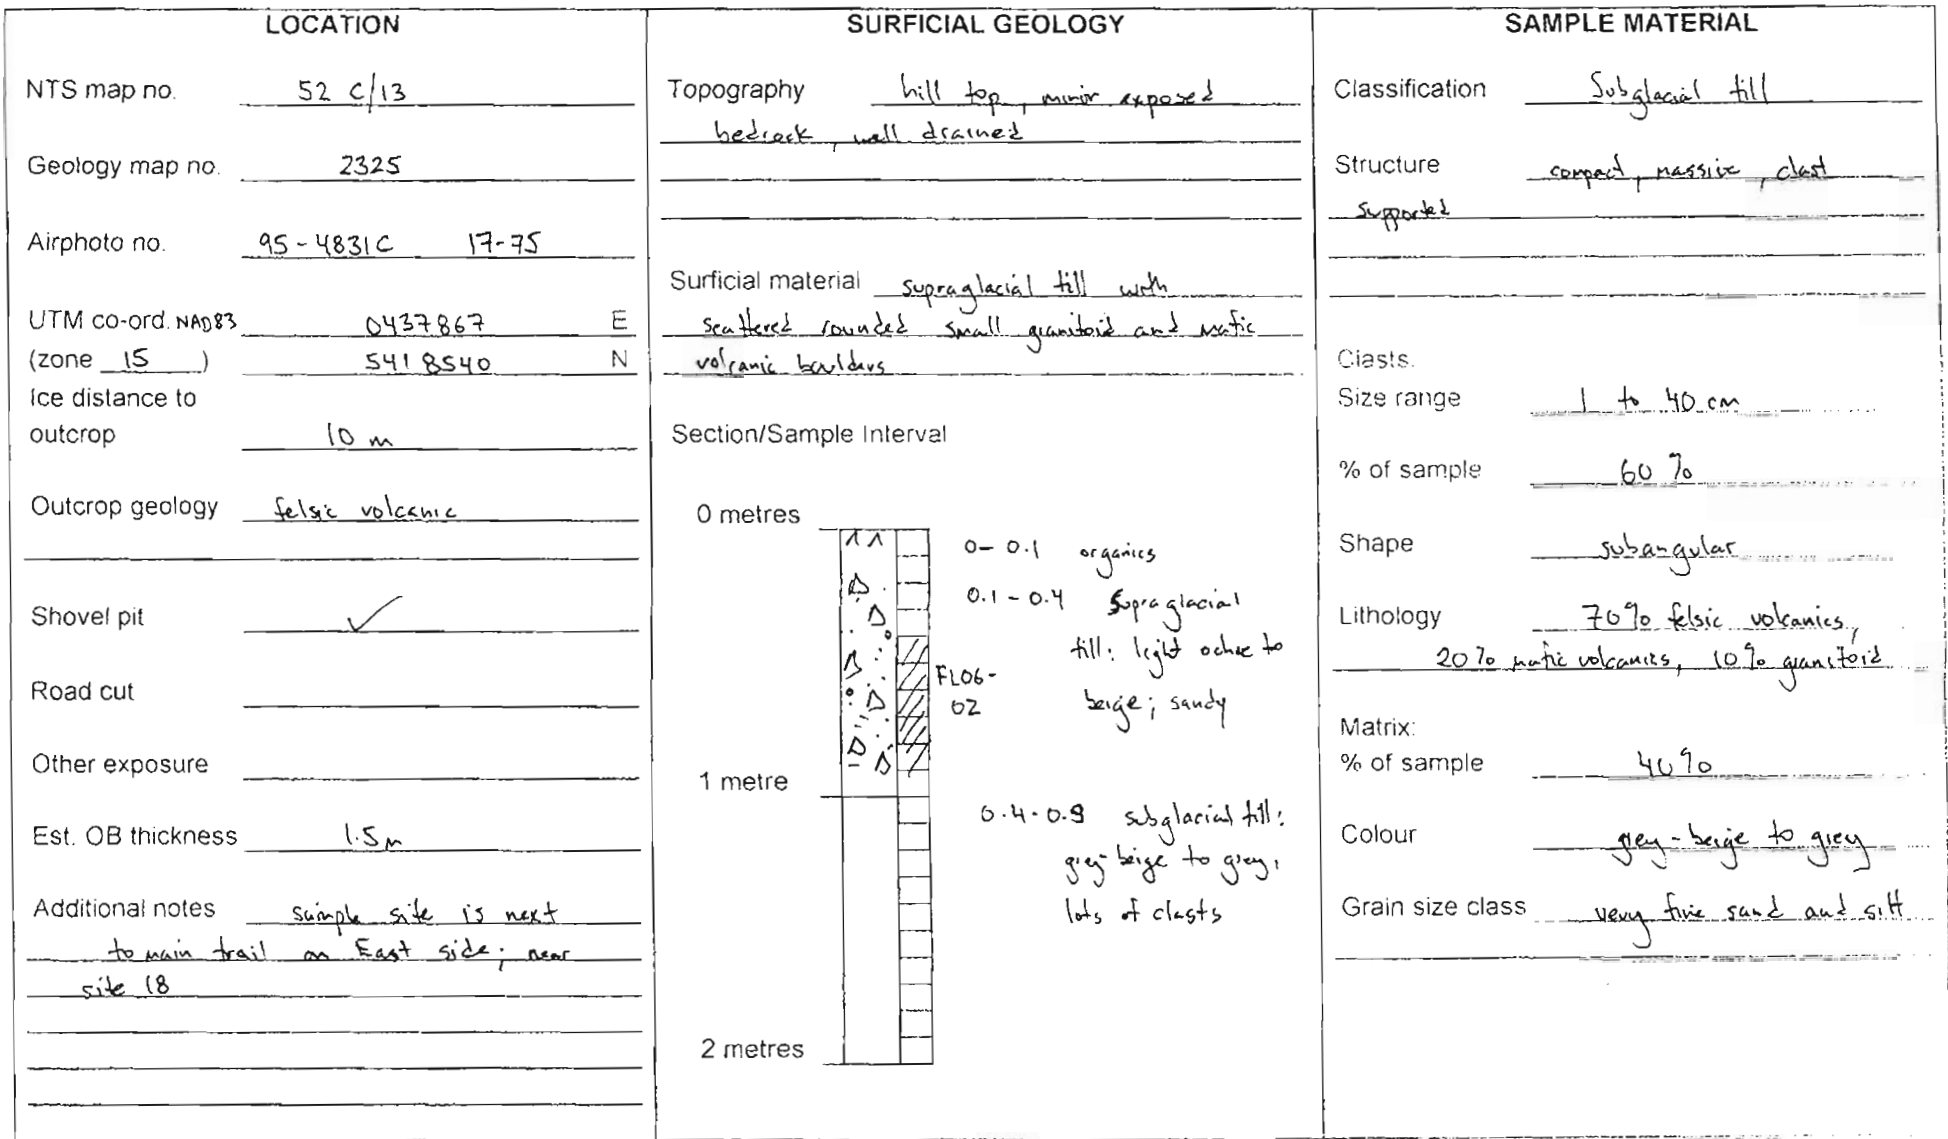 LOCATION
NTS map no. 52 C/13
Geology map no. 2325
Airphoto no. 95-4831C 17-75
UTM co-ord. NAD83 0437867 E
(zone 15 ) 5418540 N
Ice distance to
outcrop 10 m
Outcrop geology felsic volcanic
Shovel pit ✓
Road cut
Other exposure
Est. OB thickness 1.5m
Additional notes sample site is next
to main trail on East side; near
site 18
SURFICIAL GEOLOGY
Topography hill top, minor exposed
bedrock, well drained
Surficial material supraglacial till with
scattered rounded small granitoid and mafic
volcanic boulders
Section/Sample Interval
0 metres
0-0.1 organics
0.1-0.4 supraglacial
till: light ochre to
beige; sandy
FL06-
02
1 metre
0.4-0.9 subglacial till:
grey-beige to grey,
lots of clasts
2 metres
SAMPLE MATERIAL
Classification Subglacial till
Structure compact, massive, clast
supported
Clasts:
Size range 1 to 40 cm
% of sample 60%
Shape subangular
Lithology 70% felsic volcanics,
20% mafic volcanics, 10% granitoid
Matrix:
% of sample 40%
Colour grey-beige to grey
Grain size class very fine sand and silt